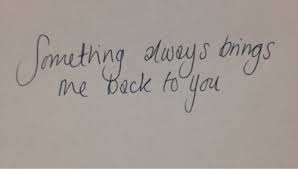 Something always brings
me back to you